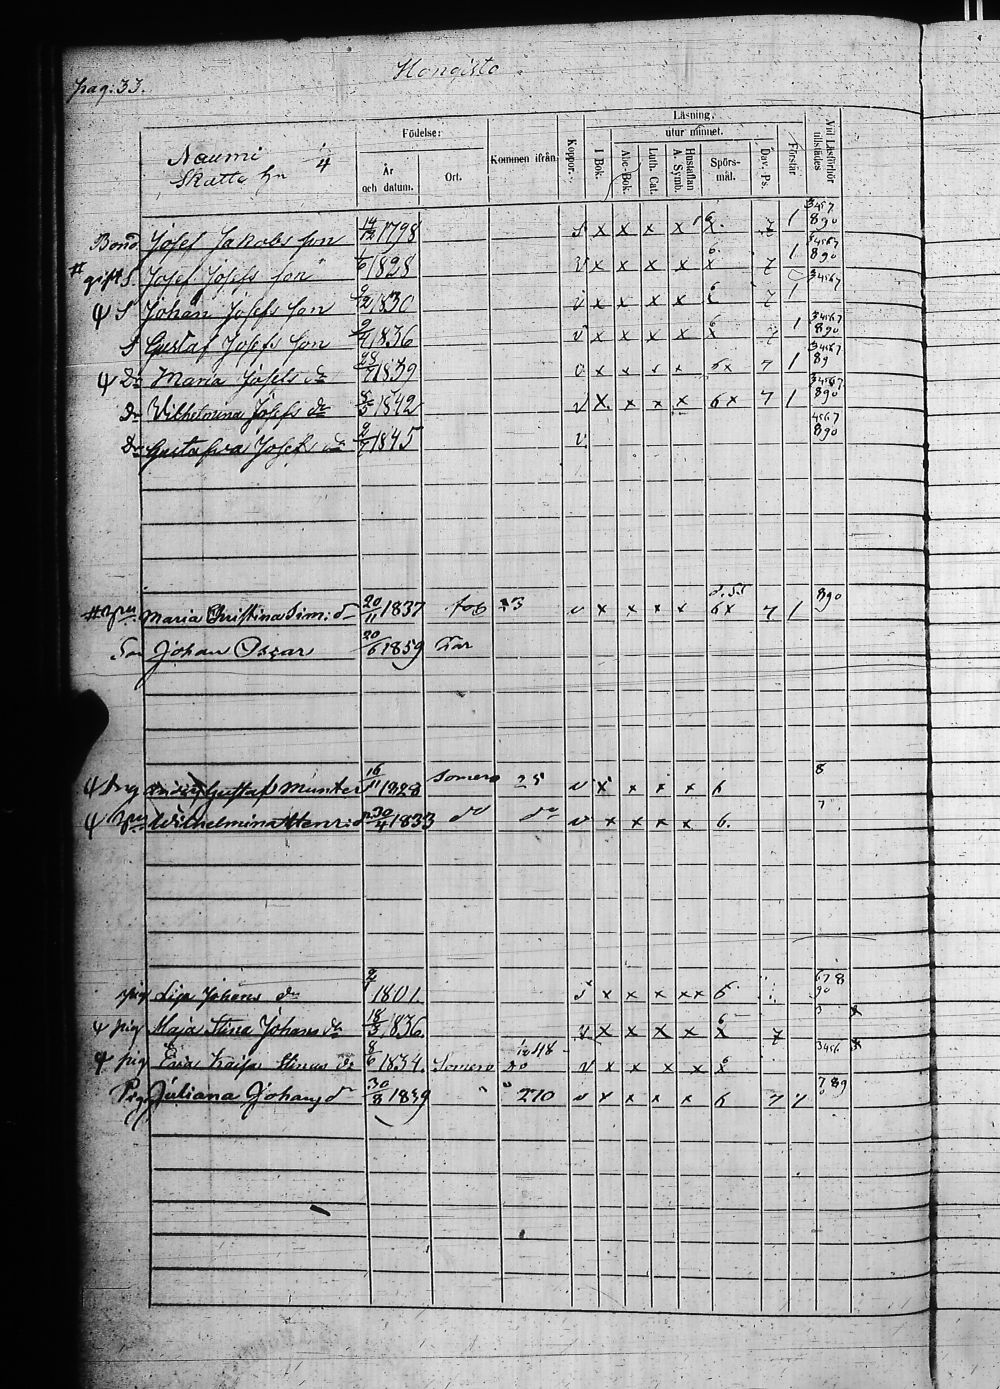 pag: 33.
Hongisto
Naumi 1/4
Skatte hn
Födelse:
År och datum.
Ort.
Kommen ifrån.
Koppor.
Läsning,
I Bok.
utur minnet.
Abc-Bok.
Luth. Cat.
Hustaflan A. Symb.
Spörs-mål.
Dav. Ps.
Förstår
Vid Läsförhör tillstädes
Bond. Josef Jakobs son 14/12 1798 s x x x x 6 x. 7 1 3457 890
# gift S. Josef Josefs son 1/6 1828 v x x x x 6. x 7 1 34567 890
ψ S Johan Josefs son 9/2 1830 v x x x x 6 x 7 1 34567
S Gustaf Josefs son 9/4 1836 v x x x x 6 x 7 1 34567 890
ψ Dr Maria Josefs dr 28/7 1839 v x x x x 6x 7 1 34567 89
dr Wilhelmina Josefs dr 8/5 1842 v x. x x x 6x 7 1 34567 890
Dr Gustafva Josefs dr 9/7 1845 v 4567 890
Maria Christina Sim: dr 20/11 1837 13 v x x x x 6x 7 1 890
Son Johan Oscar 20/6 1859
ψ Drg Gustaf Munter 16/11 1828 Somero 25 v x x x x 6 8
ψ Wilhelmina Henr: dr 30/4 1833 do do v x x x x 6. 7
pig Lisa Johans dr 9/9 1801 s x x x xx 6 678 90
ψ pig Maja Stina Johans dr 18/3 1836. v x x x x 6 x 7 5 x
ψ pig Eva Kaisa dr 8/6 1834. Somero v x x x x 6 x 3456 x
Pig Juliana Johans dr 30/8 1839 " " 270 v x x x x 6 7 7 789